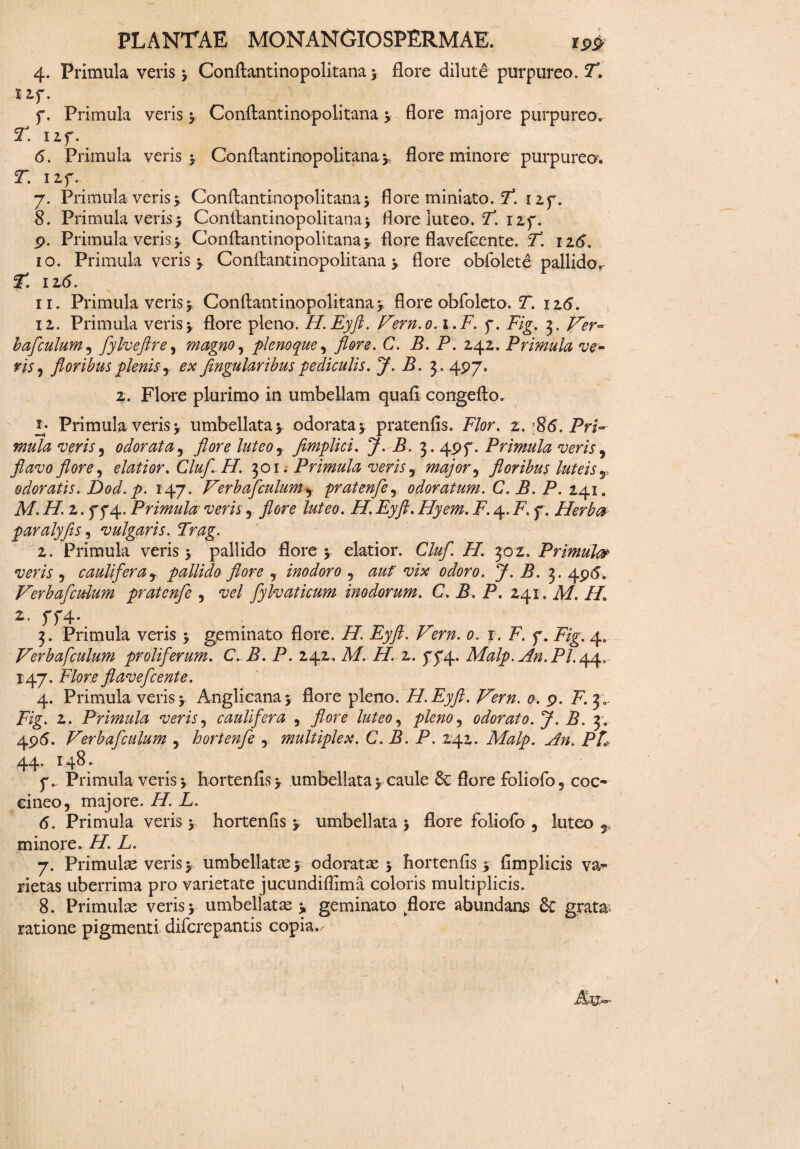 PLANTAE MONANGIOSPERMAE. 199
4. Primula veris ; Conſtantinopolitana ; flore dilutê purpureo. T.
125.
5. Primula veris ; Conſtantinopolitana ; flore majore purpureo.
T. 125.
6. Primula veris ; Conſtantinopolitana ; flore minore purpureo.
T. 125.
7. Primula veris ; Conſtantinopolitana ; flore miniato. T. 125.
8. Primula veris ; Conſtantinopolitana ; flore luteo. T. 125.
9. Primula veris ; Conſtantinopolitana ; flore flaveſcente. T. 126.
10. Primula veris ; Conſtantinopolitana ; flore obſoletê pallido.
T. 126.
11. Primula veris ; Conſtantinopolitana ; flore obſoleto. T. 126.
12. Primula veris ; flore pleno. H. Eyſt. Vern. o. 1. F. 5. Fig. 3. Ver-
baſculum, ſylveſtre, magno, plenoque, flore. C. B. P. 242. Primula ve-
ris, floribus plenis, ex ſingularibus pediculis. J. B. 3. 497.
2. Flore plurimo in umbellam quaſi congeſto.
1. Primula veris ; umbellata ; odorata ; pratenſis. Flor. 2. 86. Pri-
mula veris, odorata, flore luteo, ſimplici. J. B. 3. 495. Primula veris,
flavo flore, elatior. Cluſ. H. 301. Primula veris, major, floribus luteis,
odoratis. Dod. p. 147. Verbaſculum, pratenſe, odoratum. C. B. P. 241.
M. H. 2. 554. Primula veris, flore luteo. H. Eyſt. Hyem. F. 4. F. 5. Herba
paralyſis, vulgaris. Trag.
2. Primula veris ; pallido flore ; elatior. Cluſ. H. 302. Primula
veris, caulifera, pallido flore, inodoro, aut vix odoro. J. B. 3. 496.
Verbaſculum pratenſe, vel ſylvaticum inodorum. C. B. P. 241. M. H.
2. 554.
3. Primula veris ; geminato flore. H. Eyſt. Vern. o. 1. F. 5. Fig. 4.
Verbaſculum proliferum. C. B. P. 242. M. H. 2. 554. Malp. An. Pl. 44.
147. Flore flaveſcente.
4. Primula veris ; Anglicana ; flore pleno. H. Eyſt. Vern. o. 9. F. 3.
Fig. 2. Primula veris, caulifera, flore luteo, pleno, odorato. J. B. 3.
496. Verbaſculum, hortenſe, multiplex. C. B. P. 242. Malp. An. Pl.
44. 148.
5. Primula veris ; hortenſis ; umbellata ; caule & flore folioſo, coc-
cineo, majore. H. L.
6. Primula veris ; hortenſis ; umbellata ; flore folioſo, luteo,
minore. H. L.
7. Primulæ veris ; umbellatæ ; odoratæ ; hortenſis ; ſimplicis va-
rietas uberrima pro varietate jucundiſſimâ coloris multiplicis.
8. Primulæ veris ; umbellatæ ; geminato flore abundans & grata
ratione pigmenti diſcrepantis copia.
Au-